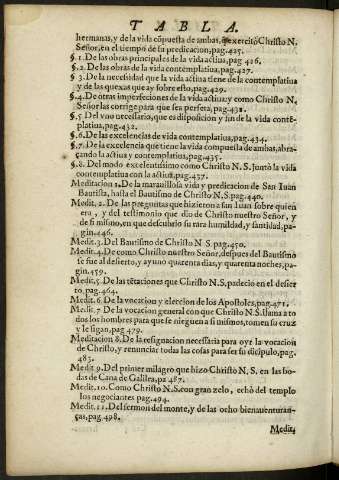 TABLA.
hermanas, y de la vida cõpuesta de ambas, q̃ exercitó Christo N.
Señor, en el tiempo de su predicacion, pag. 425.
§. 1. De las obras principales de la vida actiua, pag 426.
§. 2. De las obras de la vida contemplatiua, pag. 427.
§ 3. De la necessidad que la vida actiua tiene de la contemplatiua
y de las quexas que ay sobre esto, pag. 429.
§. 4. De otras imperfeciones de la vida actiua; y como Christo N,
Señor las corrige para que sea perfeta, pag. 432.
§. 5. Del vno necessario, que es disposicion y fin de la vida contẽ-
platiua, pag. 432.
§. 6. De las excelencias de vida contemplatiua, pag. 434.
§. 7. De la excelencia que tiene la vida compuesta de ambas, abra,
çando la actiua y contemplatiua, pag. 435.
§. 8. Del modo excelentissimo como Christo N. S. juntò la vida
contemplatiua con la actiua, pag. 437.
Meditacion 1. De la marauillosa vida y predicacion de San Iuan
Bautista, hasta el Bautismo de Christo N S. pag. 440.
Medit. 2. De las preguntas que hizieron a san Iuan sobre quien
era, y del testimonio que dio de Christo nuestro Señor, y
de si mismo, en que descubrio su rara humildad, y santidad, pa-
gin. 446.
Medit. 3. Del Bautismo de Christo N S. pag. 450.
Medit. 4. De como Christo nuestro Señor, despues del Bautismo
se fue al desierto, y ayunò quarenta dias, y quarenta noches, pa-
gin. 459.
Medit. 5 De las tẽtaciones que Christo N S, padecio en el desier
to, pag. 464.
Medit. 6 De la vocacion y eleccion de los Apostoles, pag. 471.
Medit. 7 De la vocacion general con que Christo N S. llama a to
dos los hombres para que se nieguen a si mismos, tomen su cruz
y le sigan, pag 479.
Meditacion 8. De la resignacion necessaria para oyr la vocacion
de Christo, y renunciar todas las cosas para ser su dicipulo, pag.
483.
Medit 9. Del primer milagro que hizo Christo N. S. en las bo-
das de Cana de Galilea, pa 487.
Medit. 10. Como Christo N. S. con gran zelo, echò del templo
los negociantes pag. 494.
Medit. 11. Del sermon del monte, y de las ocho bienauenturan-
ças, pag. 498.
Medit.